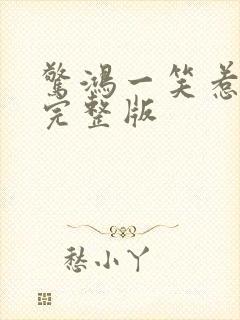 驚鴻一笑惹
完整版
愁小丫